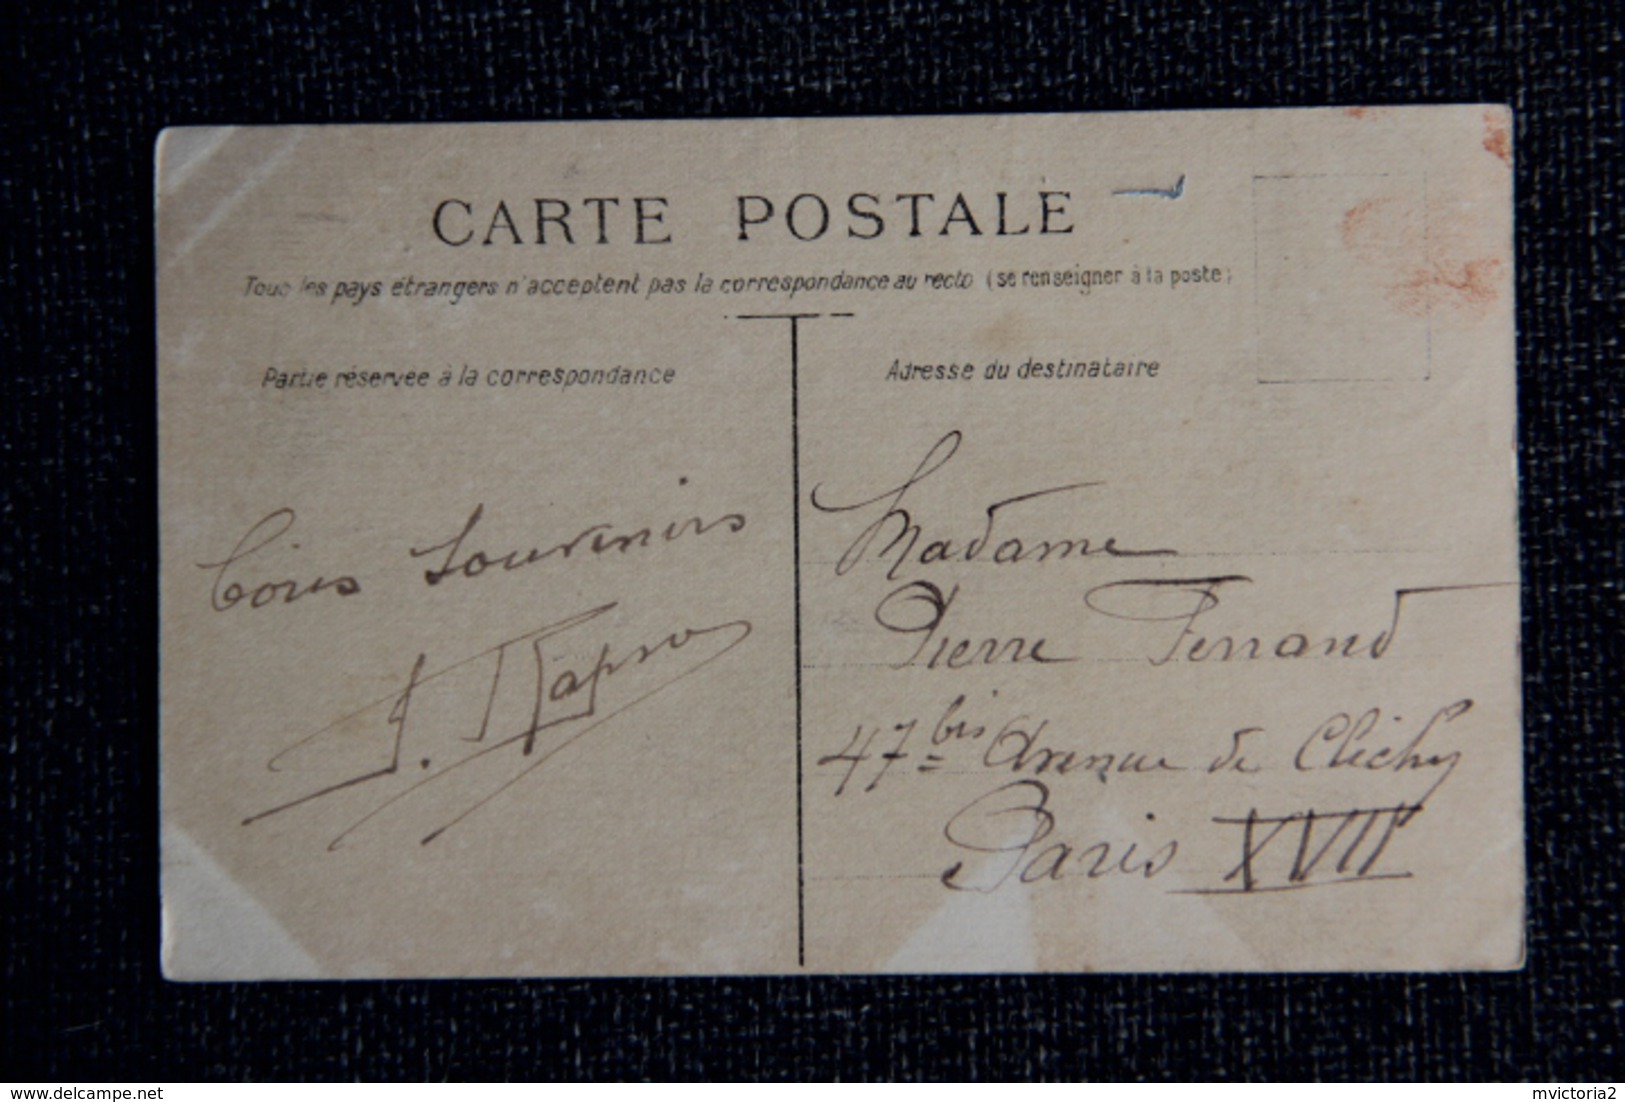 CARTE POSTALE
Tous les pays étrangers n'acceptent pas la correspondance au recto (se renseigner à la poste)
Partie réservée à la correspondance
Adresse du destinataire
souvenirs
Madame
Pierre Ferrand
47 bis Avenue de Clichy
Paris XVII
www.delcampe.net
mvictoria2